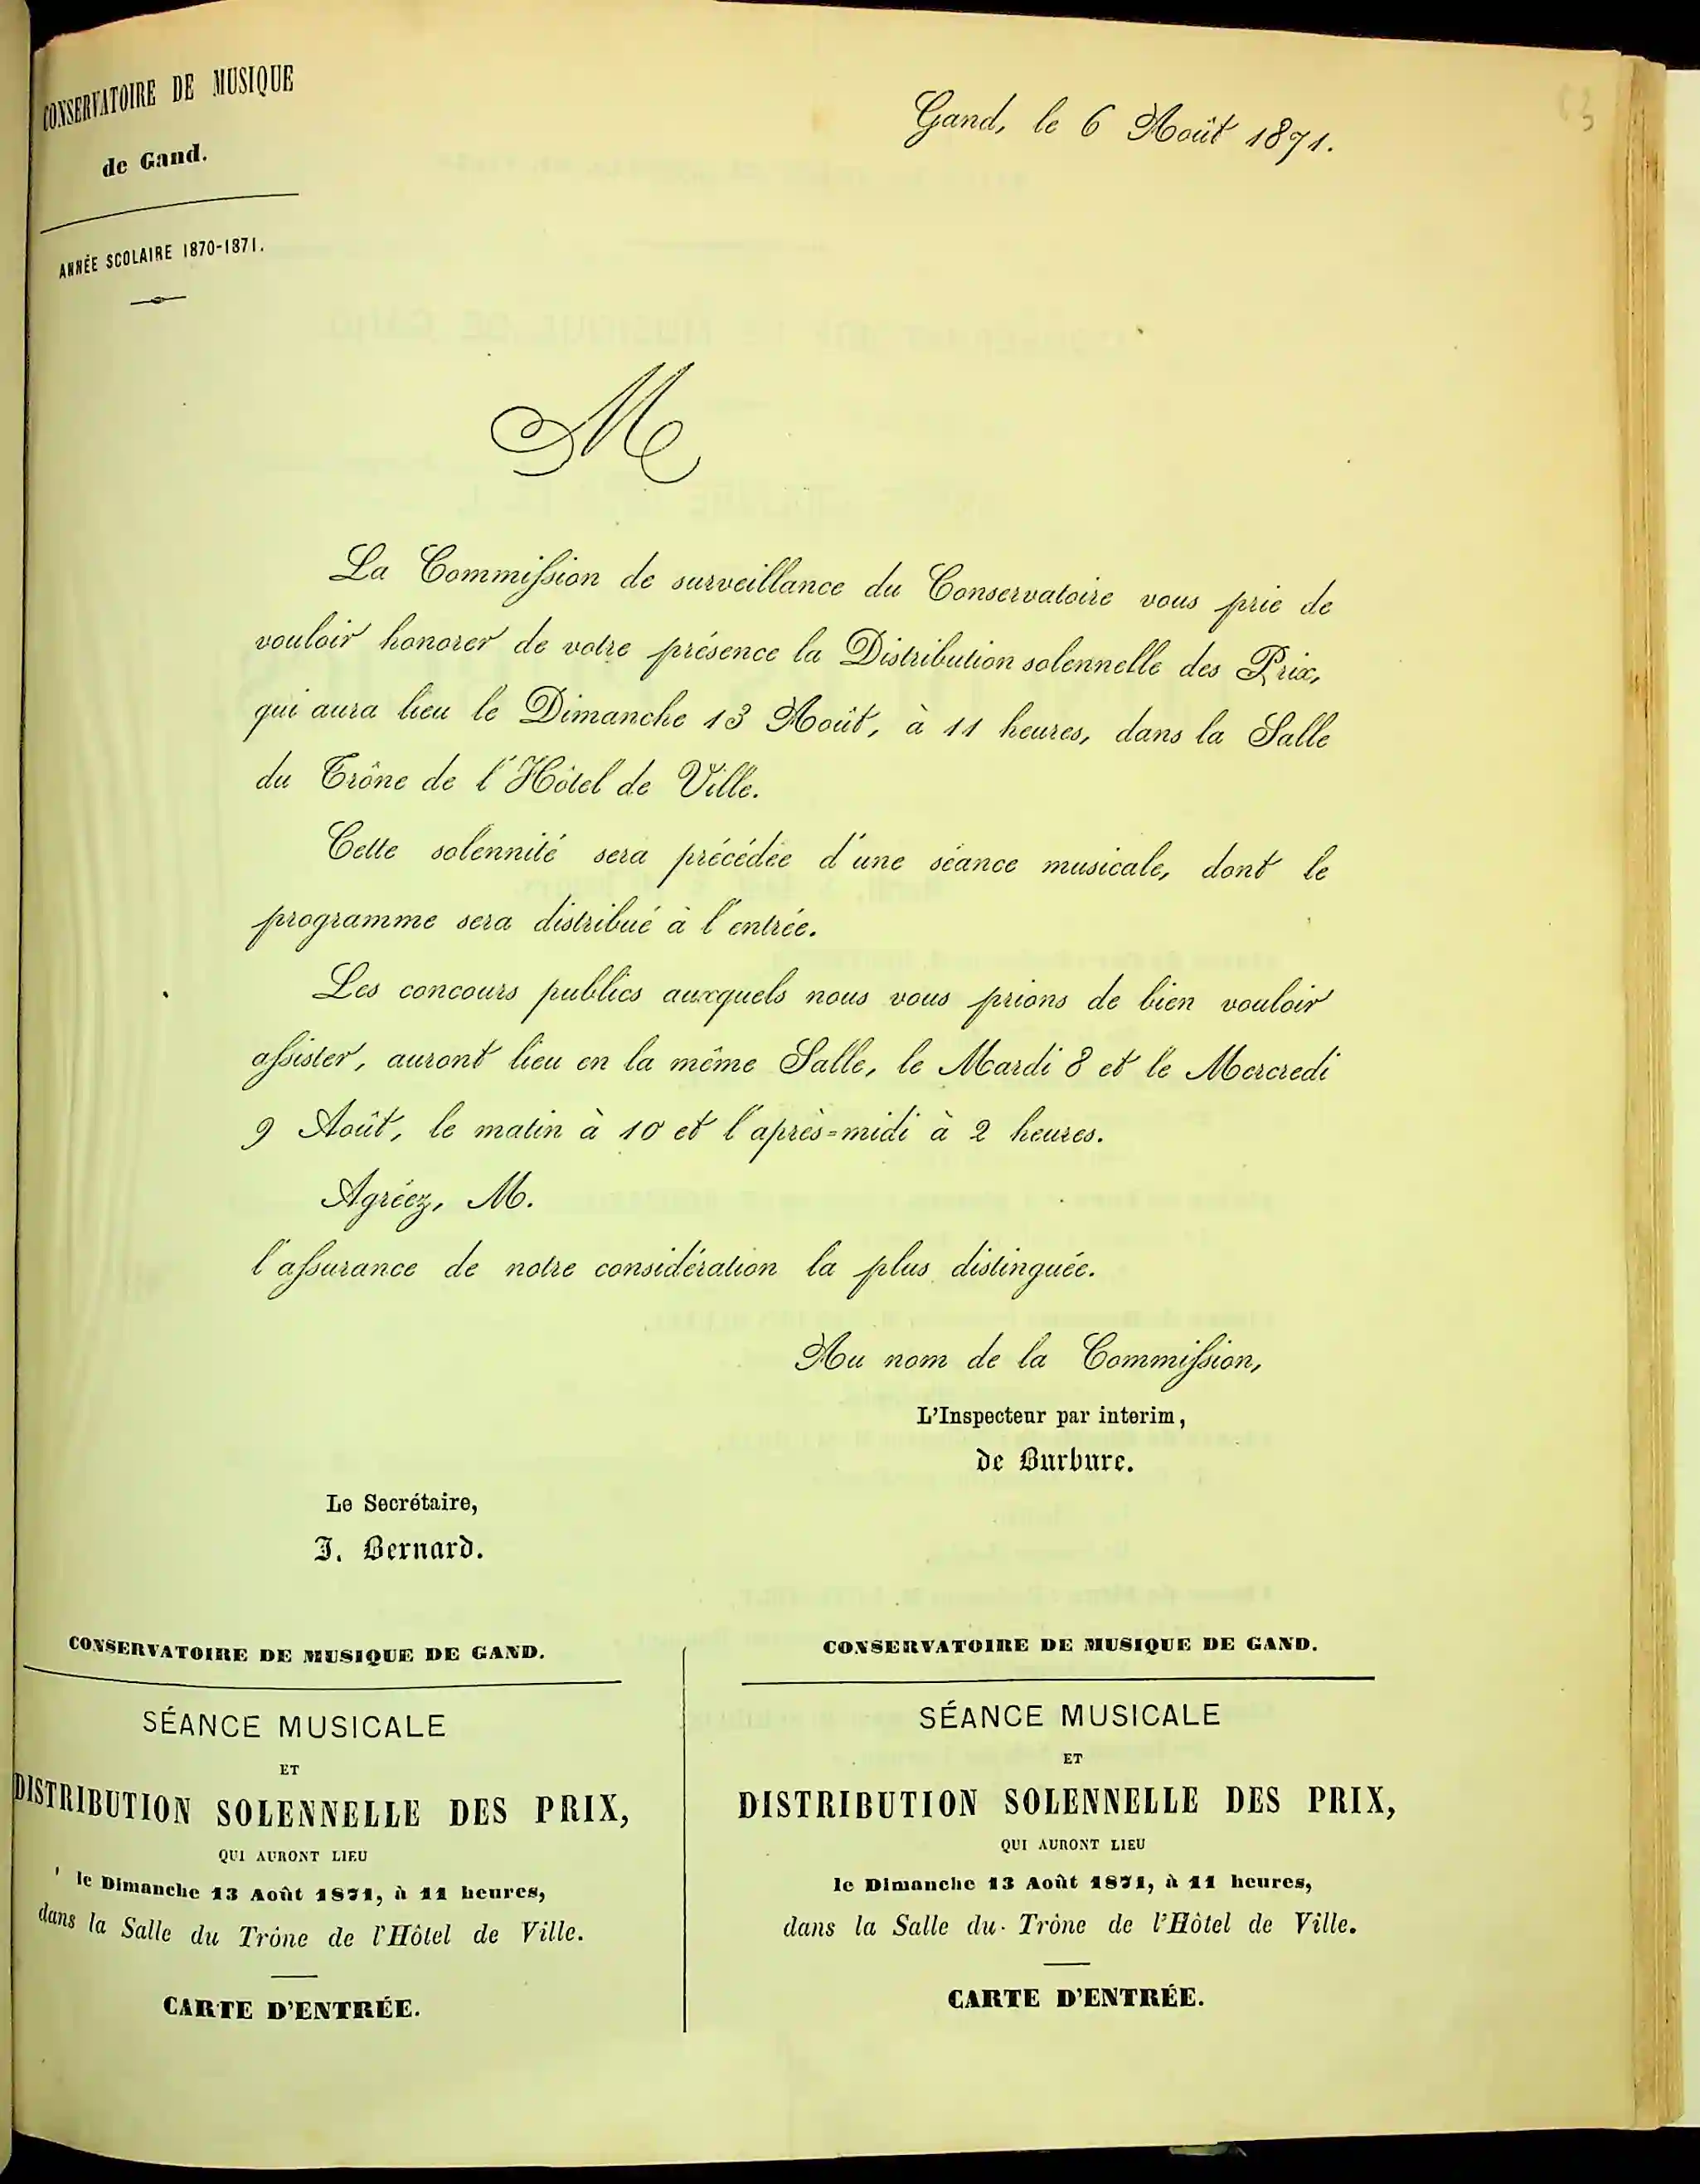 CONSERVATOIRE DE MUSIQUE
de Gand.
ANNÉE SCOLAIRE 1870-1871.
Gand, le 6 Août 1871.
63
M
La Commission de surveillance du Conservatoire vous prie de
vouloir honorer de votre présence la Distribution solennelle des Prix,
qui aura lieu le Dimanche 13 Août, à 11 heures, dans la Salle
du Trône de l'Hôtel de Ville.
Cette solennité sera précédée d'une séance musicale, dont le
programme sera distribué à l'entrée.
Les concours publics auxquels nous vous prions de bien vouloir
assister, auront lieu en la même Salle, le Mardi 8 et le Mercredi
9 Août, le matin à 10 et l'après=midi à 2 heures.
Agréez, M.
l'assurance de notre considération la plus distinguée.
Au nom de la Commission,
L'Inspecteur par interim,
de Burbure.
Le Secrétaire,
J. Bernard.
CONSERVATOIRE DE MUSIQUE DE GAND.
SÉANCE MUSICALE
ET
DISTRIBUTION SOLENNELLE DES PRIX,
QUI AURONT LIEU
le Dimanche 13 Août 1871, à 11 heures,
dans la Salle du Trône de l'Hôtel de Ville.
CARTE D'ENTRÉE.
CONSERVATOIRE DE MUSIQUE DE GAND.
SÉANCE MUSICALE
ET
DISTRIBUTION SOLENNELLE DES PRIX,
QUI AURONT LIEU
le Dimanche 13 Août 1871, à 11 heures,
dans la Salle du Trône de l'Hôtel de Ville.
CARTE D'ENTRÉE.